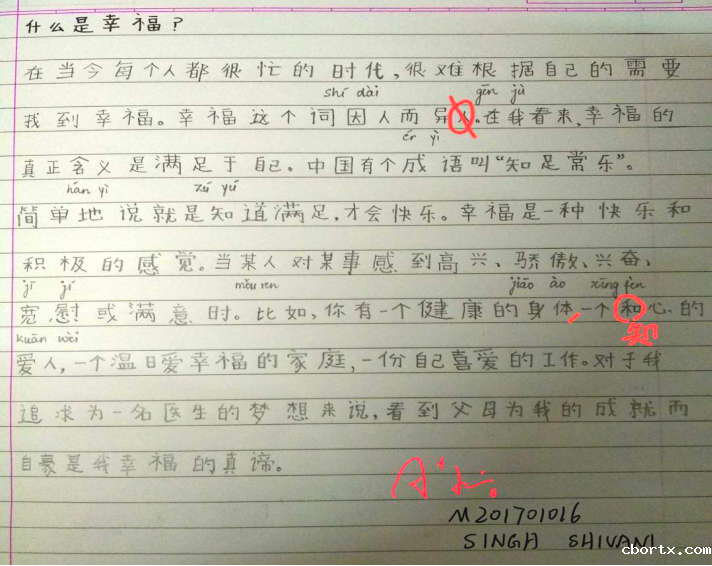 什么是幸福？
在当今每个人都很忙的时代,很难根据自己的需要
shí dài gēn jù
找到幸福。幸福这个词因人而异人。在我看来,幸福的
ér yì
真正含义是满足于自己。中国有个成语叫“知足常乐”。
hán yì zú yú
简单地说就是知道满足,才会快乐。幸福是一种快乐和
积极的感觉。当某人对某事感到高兴、骄傲、兴奋、
jī jí mǒu ren jiāo ào xīng fèn
宽慰或满意时。比如,你有一个健康的身体,一个和心的
kuān wèi 知
爱人,一个温日爱幸福的家庭,一份自己喜爱的工作。对于我
追求为一名医生的梦想来说,看到父母为我的成就而
自豪是我幸福的真谛。
M201701016
SINGH SHIVANI
cbortx.com